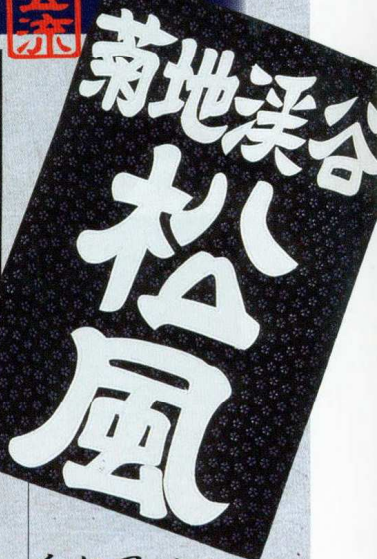 菊地渓谷
松風
流